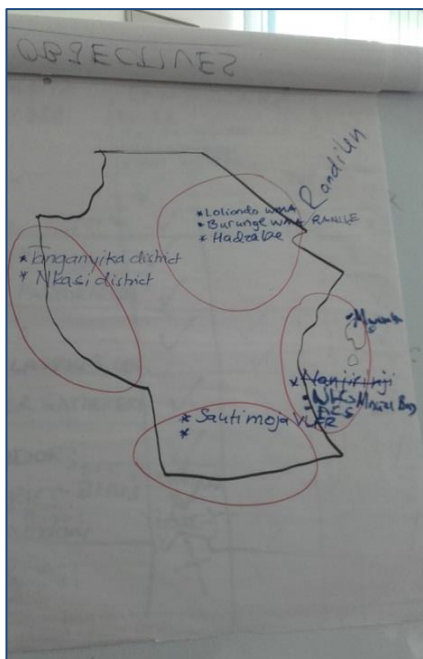 OBJECTIVES
Randilen
* Loliondo WMA
* Burunge WMA RANDILE
* Hadzabe
* Tanganyika district
* Nkasi district
* Nanjirinji
* Sautimoja VLFR
*